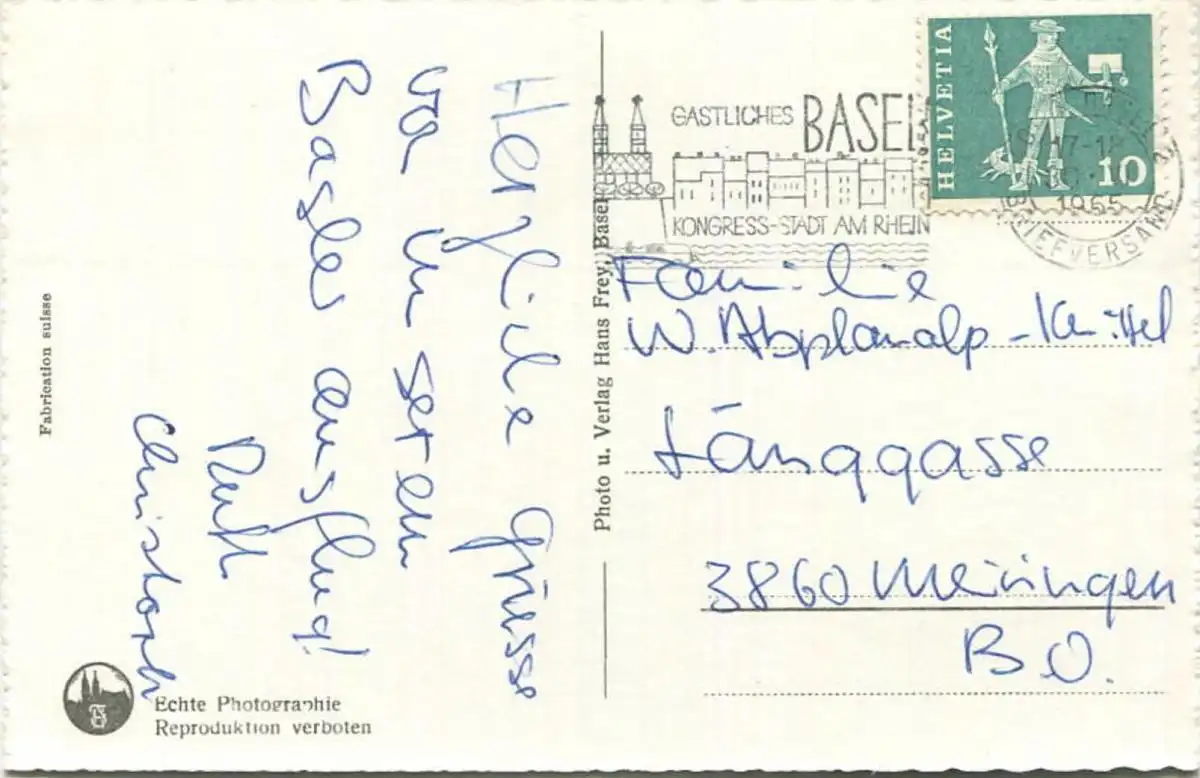 Herzliche Grüsse
von unserem
Basler ausflug!
Ruth
Christoph
Fabrication suisse
Echte Photographie
Reproduktion verboten
Photo u. Verlag Hans Frey, Basel
GASTLICHES BASEL
KONGRESS-STADT AM RHEIN
HELVETIA
10
17-18
1965
BRIEFVERSAND
Familie
W. Abplanalp-Knittel
Länggasse
3860 Meiringen
BO.